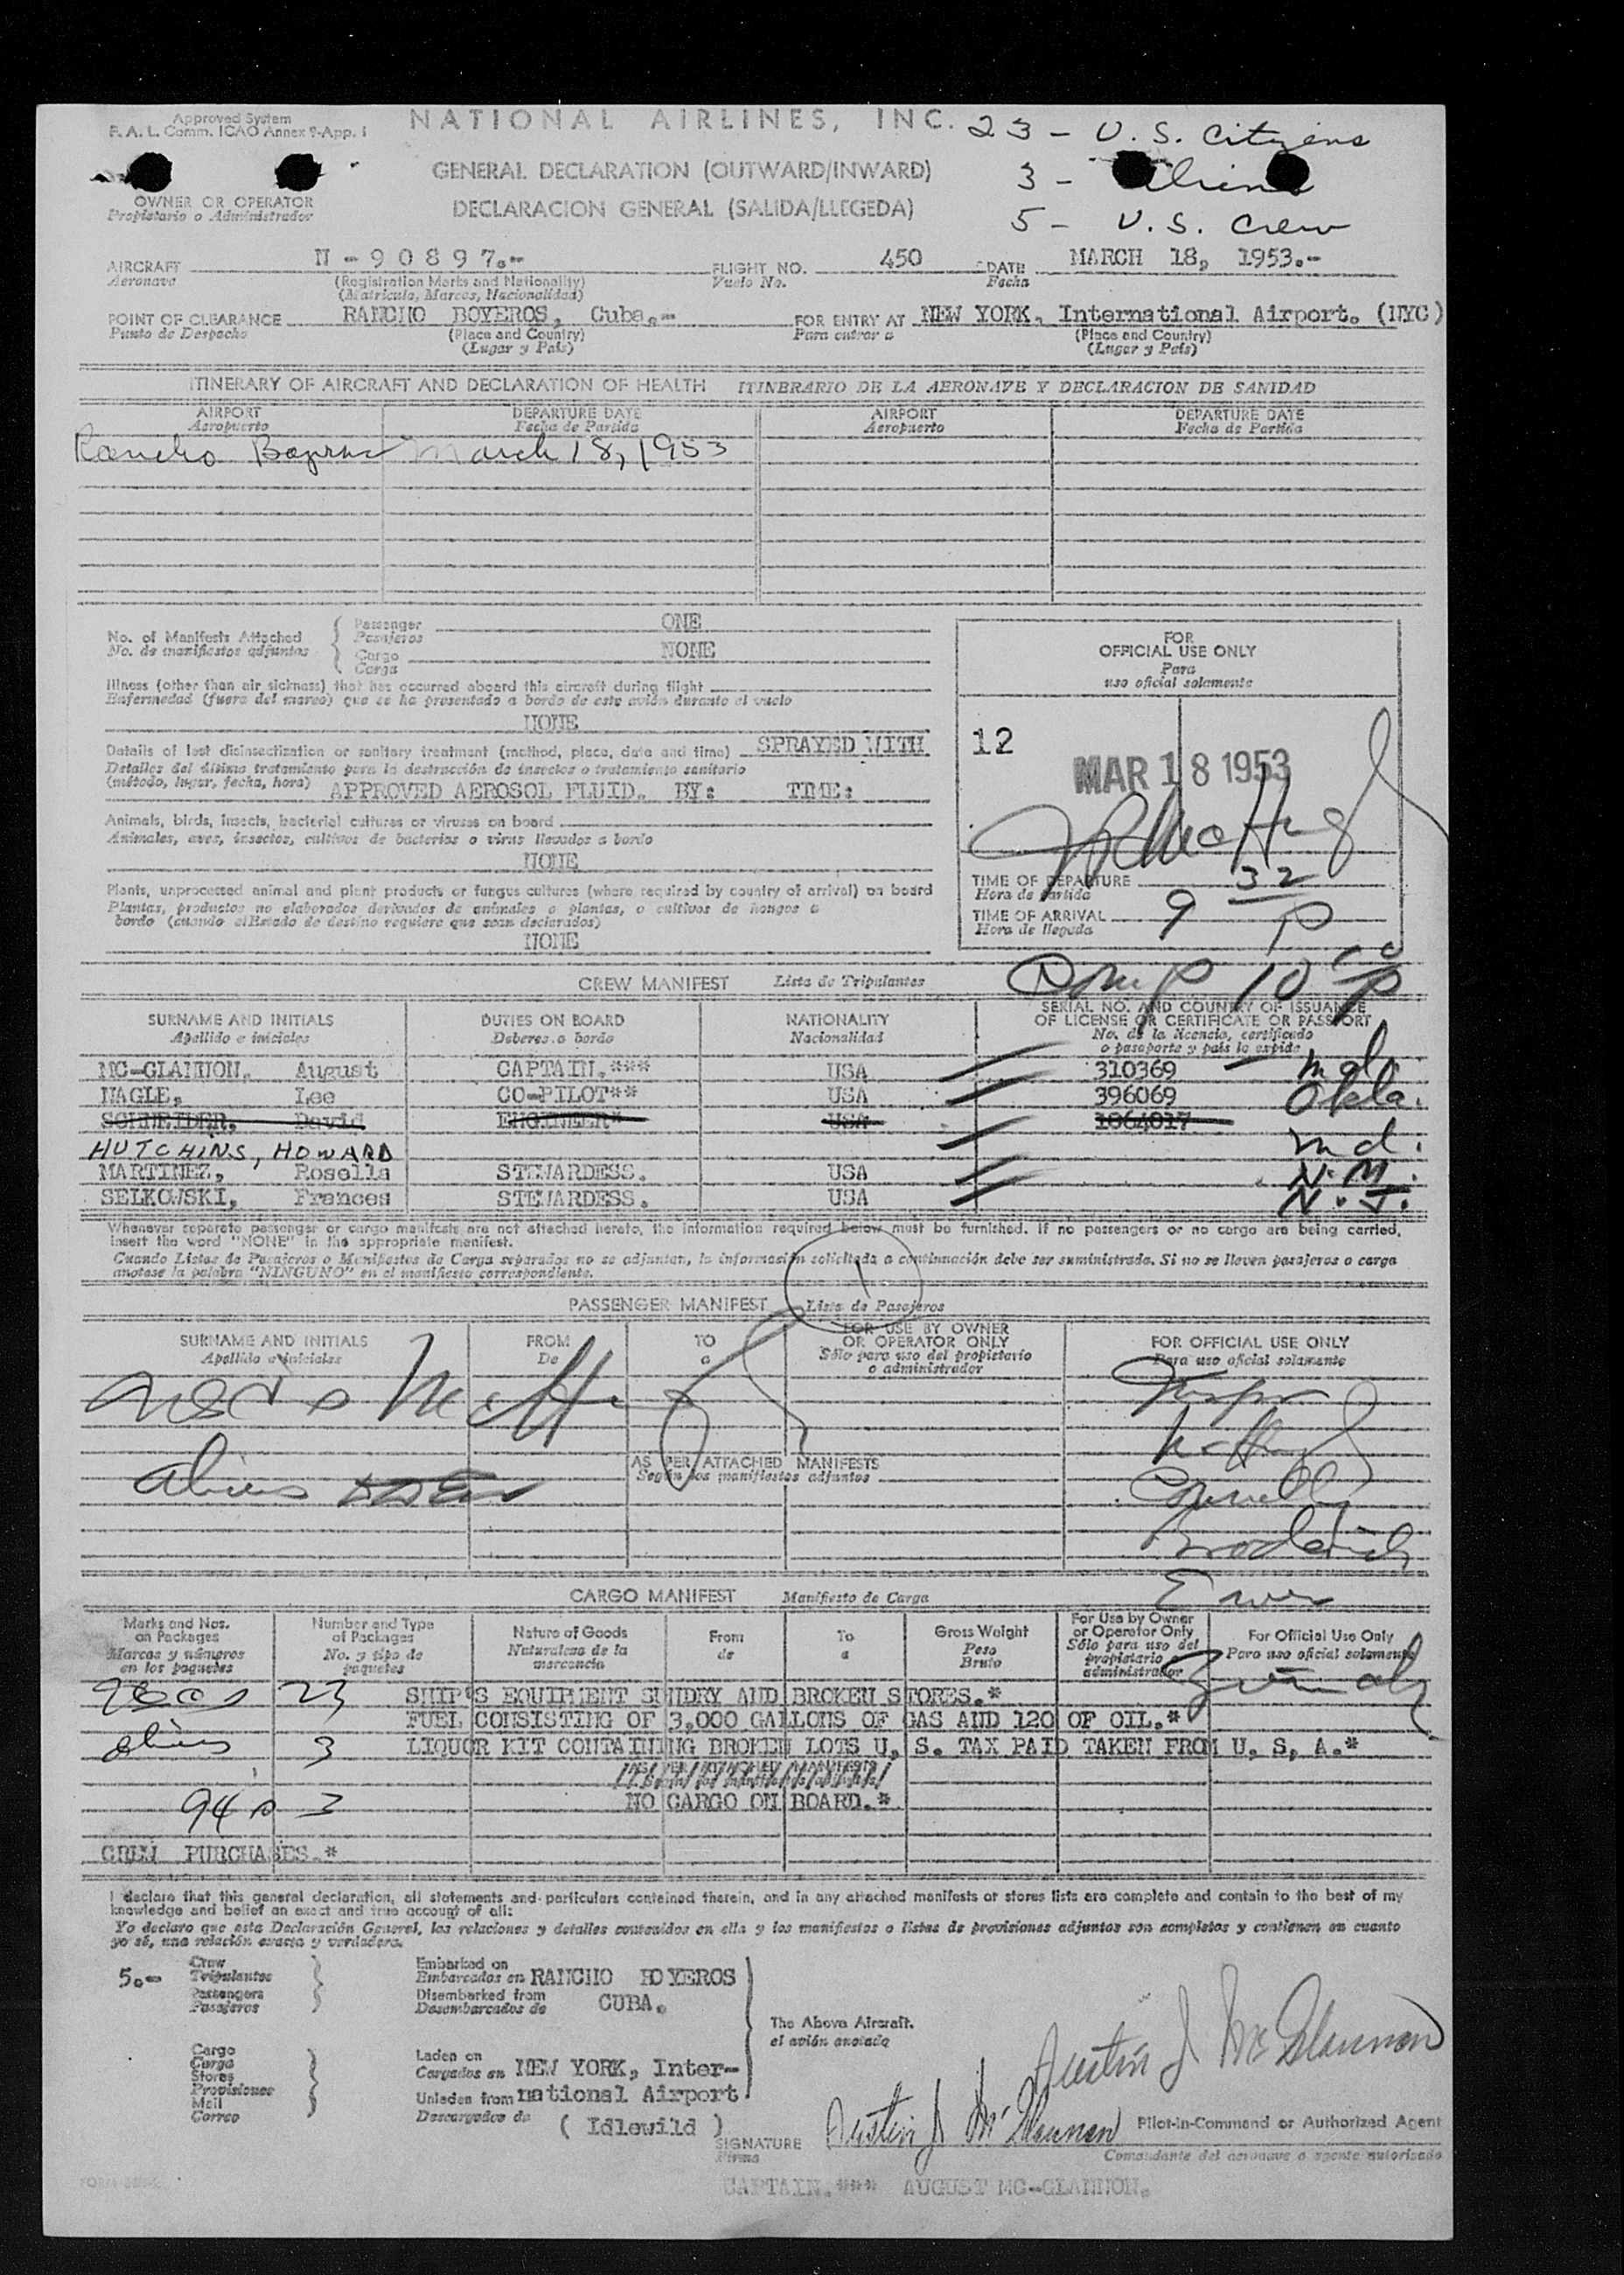 Approved System
F. A. L. Comm. ICAO Annex 9-App. 1
NATIONAL AIRLINES, INC.
23 - U. S. Citizens
GENERAL DECLARATION (OUTWARD/INWARD)
3 - Aliens
OWNER OR OPERATOR
Propietario o Administrador
DECLARACION GENERAL (SALIDA/LLEGEDA)
5 - U. S. Crew
AIRCRAFT N - 9 0 8 9 7.- FLIGHT NO. 450 DATE MARCH 18, 1953.-
Aeronave (Registration Marks and Nationality) Vuelo No. Fecha
(Matricula, Marcas, Nacionalidad)
POINT OF CLEARANCE RANCHO BOYEROS, Cuba.- FOR ENTRY AT NEW YORK, International Airport. (NYC)
Punto de Despacho (Place and Country) Para entrar a (Place and Country)
(Lugar y País) (Lugar y País)
ITINERARY OF AIRCRAFT AND DECLARATION OF HEALTH ITINERARIO DE LA AERONAVE Y DECLARACION DE SANIDAD
AIRPORT DEPARTURE DATE AIRPORT DEPARTURE DATE
Aeropuerto Fecha de Partida Aeropuerto Fecha de Partida
Rancho Boyeros March 18, 1953
No. of Manifests Attached Passenger ONE
No. de manifiestos adjuntos Pasajeros
Cargo NONE
Carga
Illness (other than air sickness) that has occurred aboard this aircraft during flight
Enfermedad (fuera del mareo) que se ha presentado a bordo de este avión durante el vuelo
NONE
Details of last disinsectization or sanitary treatment (method, place, date and time) SPRAYED WITH
Detalles del último tratamiento para la destrucción de insectos o tratamiento sanitario
(método, lugar, fecha, hora) APPROVED AEROSOL FLUID. BY: TIME:
Animals, birds, insects, bacterial cultures or viruses on board
Animales, aves, insectos, cultivos de bacterias o virus llevados a bordo
NONE
Plants, unprocessed animal and plant products or fungus cultures (where required by country of arrival) on board
Plantas, productos no elaborados derivados de animales o plantas, o cultivos de hongos a
bordo (cuando el Estado de destino requiere que sean declarados)
NONE
FOR
OFFICIAL USE ONLY
Para
uso oficial solamente
12
MAR 18 1953
TIME OF DEPARTURE
Hora de Partida
TIME OF ARRIVAL 9 32 P
Hora de llegada
Comp 10 00 P
CREW MANIFEST Lista de Tripulantes
SURNAME AND INITIALS DUTIES ON BOARD NATIONALITY SERIAL NO. AND COUNTRY OF ISSUANCE
OF LICENSE OR CERTIFICATE OR PASSPORT
Apellido e iniciales Deberes a bordo Nacionalidad No. de la licencia, certificado
o pasaporte y país lo expide
MC-GLANNON, August CAPTAIN.*** USA 310369 - Md.
NAGLE, Lee CO-PILOT** USA 396069 Okla.
SCHNEIDER, David ENGINEER* USA 1064017
HUTCHINS, HOWARD Md.
MARTINEZ, Rosella STEWARDESS. USA N. M.
SELKOWSKI, Frances STEWARDESS. USA N. J.
Whenever separate passenger or cargo manifests are not attached hereto, the information required below must be furnished. If no passengers or no cargo are being carried,
insert the word "NONE" in the appropriate manifest.
Cuando Listas de Pasajeros o Manifiestos de Carga separados no se adjuntan, la información solicitada a continuación debe ser suministrada. Si no se lleven pasajeros o carga
anotese la palabra "NINGUNO" en el manifiesto correspondiente.
1
PASSENGER MANIFEST Lista de Pasajeros
SURNAME AND INITIALS FROM TO FOR USE BY OWNER
OR OPERATOR ONLY FOR OFFICIAL USE ONLY
Apellido e iniciales De a Sólo para uso del propietario
o administrador Para uso oficial solamente
Aliens
AS PER ATTACHED MANIFESTS
Según los manifiestos adjuntos
CARGO MANIFEST Manifiesto de Carga
Marks and Nos.
on Packages
Marcas y números
en los paquetes
Number and Type
of Packages
No. y tipo de
paquetes
Nature of Goods
Naturaleza de la
mercancia
From
de
To
a
Gross Weight
Peso
Bruto
For Use by Owner
or Operator Only
Sólo para uso del
propietario o
administrador
For Official Use Only
Para uso oficial solamente
23 SHIP'S EQUIPMENT SUNDRY AND BROKEN STORES.*
FUEL CONSISTING OF 3,000 GALLONS OF GAS AND 120 OF OIL.*
Aliens 3 LIQUOR KIT CONTAINING BROKEN LOTS U. S. TAX PAID TAKEN FROM U. S. A.*
NO CARGO ON BOARD.*
CREW PURCHASES.*
I declare that this general declaration, all statements and particulars contained therein, and in any attached manifests or stores lists are complete and contain to the best of my
knowledge and belief an exact and true account of all:
Yo declaro que esta Declaración General, las relaciones y detalles contenidos en ella y los manifiestos o listas de provisiones adjuntos son completos y contienen en cuanto
yo sé, una relación exacta y verdadera.
5.- Crew
Tripulantes
Passengers
Pasajeros
Embarked on
Embarcados en RANCHO BOYEROS
Disembarked from CUBA.
Desembarcados de
The Above Aircraft.
el avión anotado
Cargo
Carga
Stores
Provisiones
Mail
Correo
Laden on
Cargados en NEW YORK, Inter-
Unladen from national Airport
Descargados de ( Idlewild )
Austin J McGlannon
SIGNATURE Austin J McGlannon Pilot-in-Command or Authorized Agent
Firma Comandante del aeronave o agente autorizado
CAPTAIN.*** AUGUST MC-GLANNON.